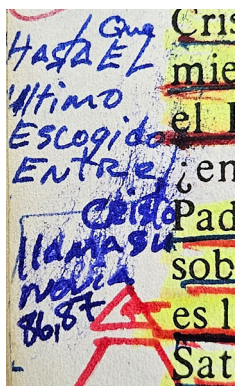 Que
Hasta EL
Ultimo
Escogido
Entre
Cristo
llama su
novia
86,87
Cris
mie
el
¿en
Pad
sob
es l
Sat